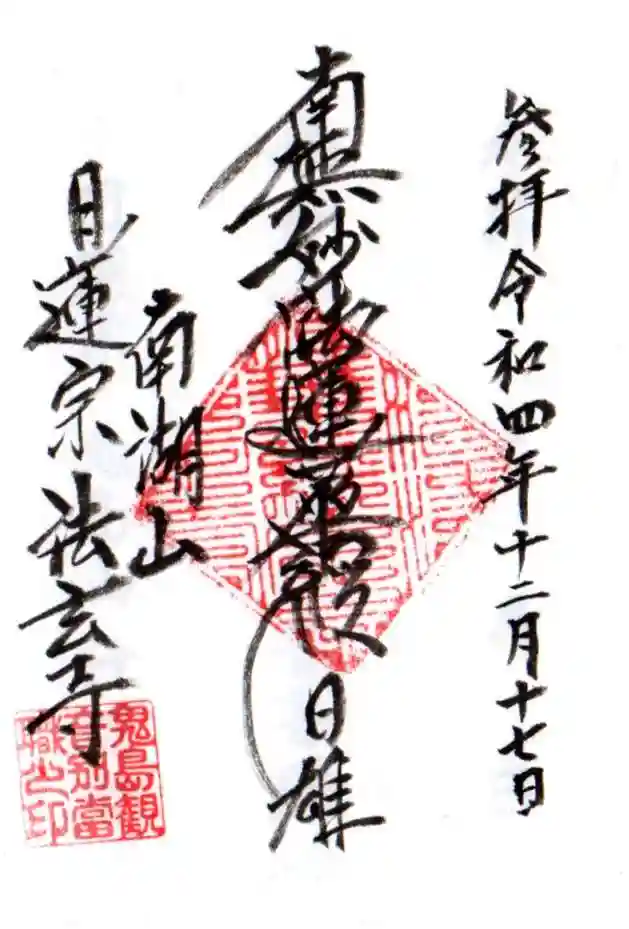 参拝令和四年十二月十七日
南無妙法蓮華経
日雄
南湖山
日蓮宗法玄寺
鬼島観
音別當
職之印